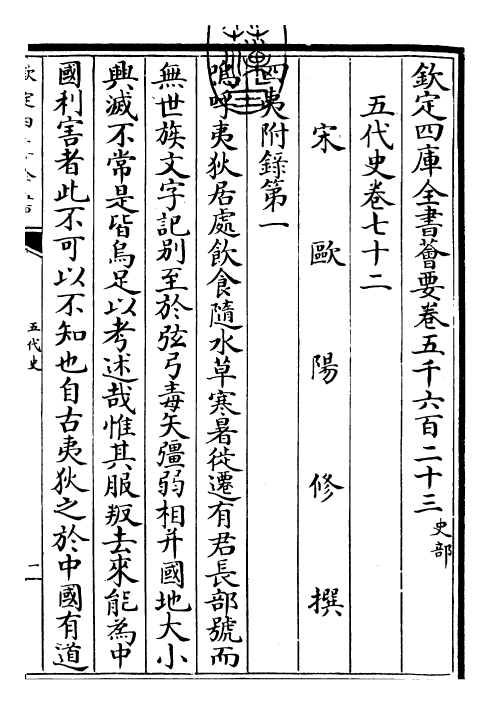 欽定四庫全書薈要卷五千六百二十三史部
五代史卷七十二
宋歐陽修撰
四夷附錄第一
嗚呼夷狄居處飲食隨水草寒暑徙遷有君長部號而
無世族文字記别至於弦弓毒矢彊弱相并國地大小
興滅不常是皆烏足以考述哉惟其服叛去來能為中
國利害者此不可以不知也自古夷狄之於中國有道
五代史
一